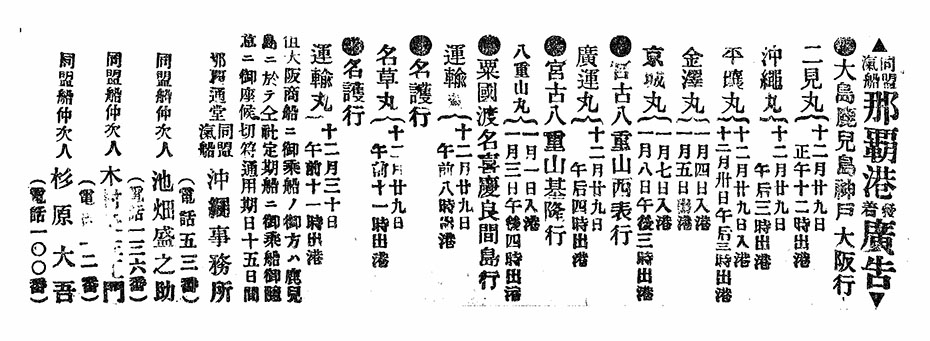 ▲同盟汽船那覇港發着廣告▼
●大島鹿兒島神戸大阪行
二見丸 十二月廿九日 正午十二時出港
沖繩丸 十二月廿九日 午后三時出港
平壤丸 十二月廿九日入港 十二月卅日午后三時出港
金澤丸 一月四日入港 一月五日出港
京城丸 一月七日入港 一月八日午後三時出港
●宮古八重山西表行
廣運丸 十二月廿九日 午后四時出港
●宮古八重山基隆行
八重山丸 一月一日入港 一月三日午後四時出港
●粟國渡名喜慶良間島行
運輸丸 十二月廿九日 午前八時出港
●名護行
名草丸 十二月廿九日 午前十一時出港
●名護行
運輸丸 十二月三十日 午前十一時出港
但大阪商船ニ御乘船ノ御方ハ鹿兒
島ニ於テ仝社定期船ニ御乘船御隨
意ニ御座候切符通用期日十五日間
那覇通堂 同盟汽船 沖繩事務所
(電話五三番)
同盟船仲次人 池畑盛之助
(電話一三六番)
同盟船仲次人 木 門
(電話 一二番)
同盟船仲次人 杉原大吾
(電話一〇〇番)